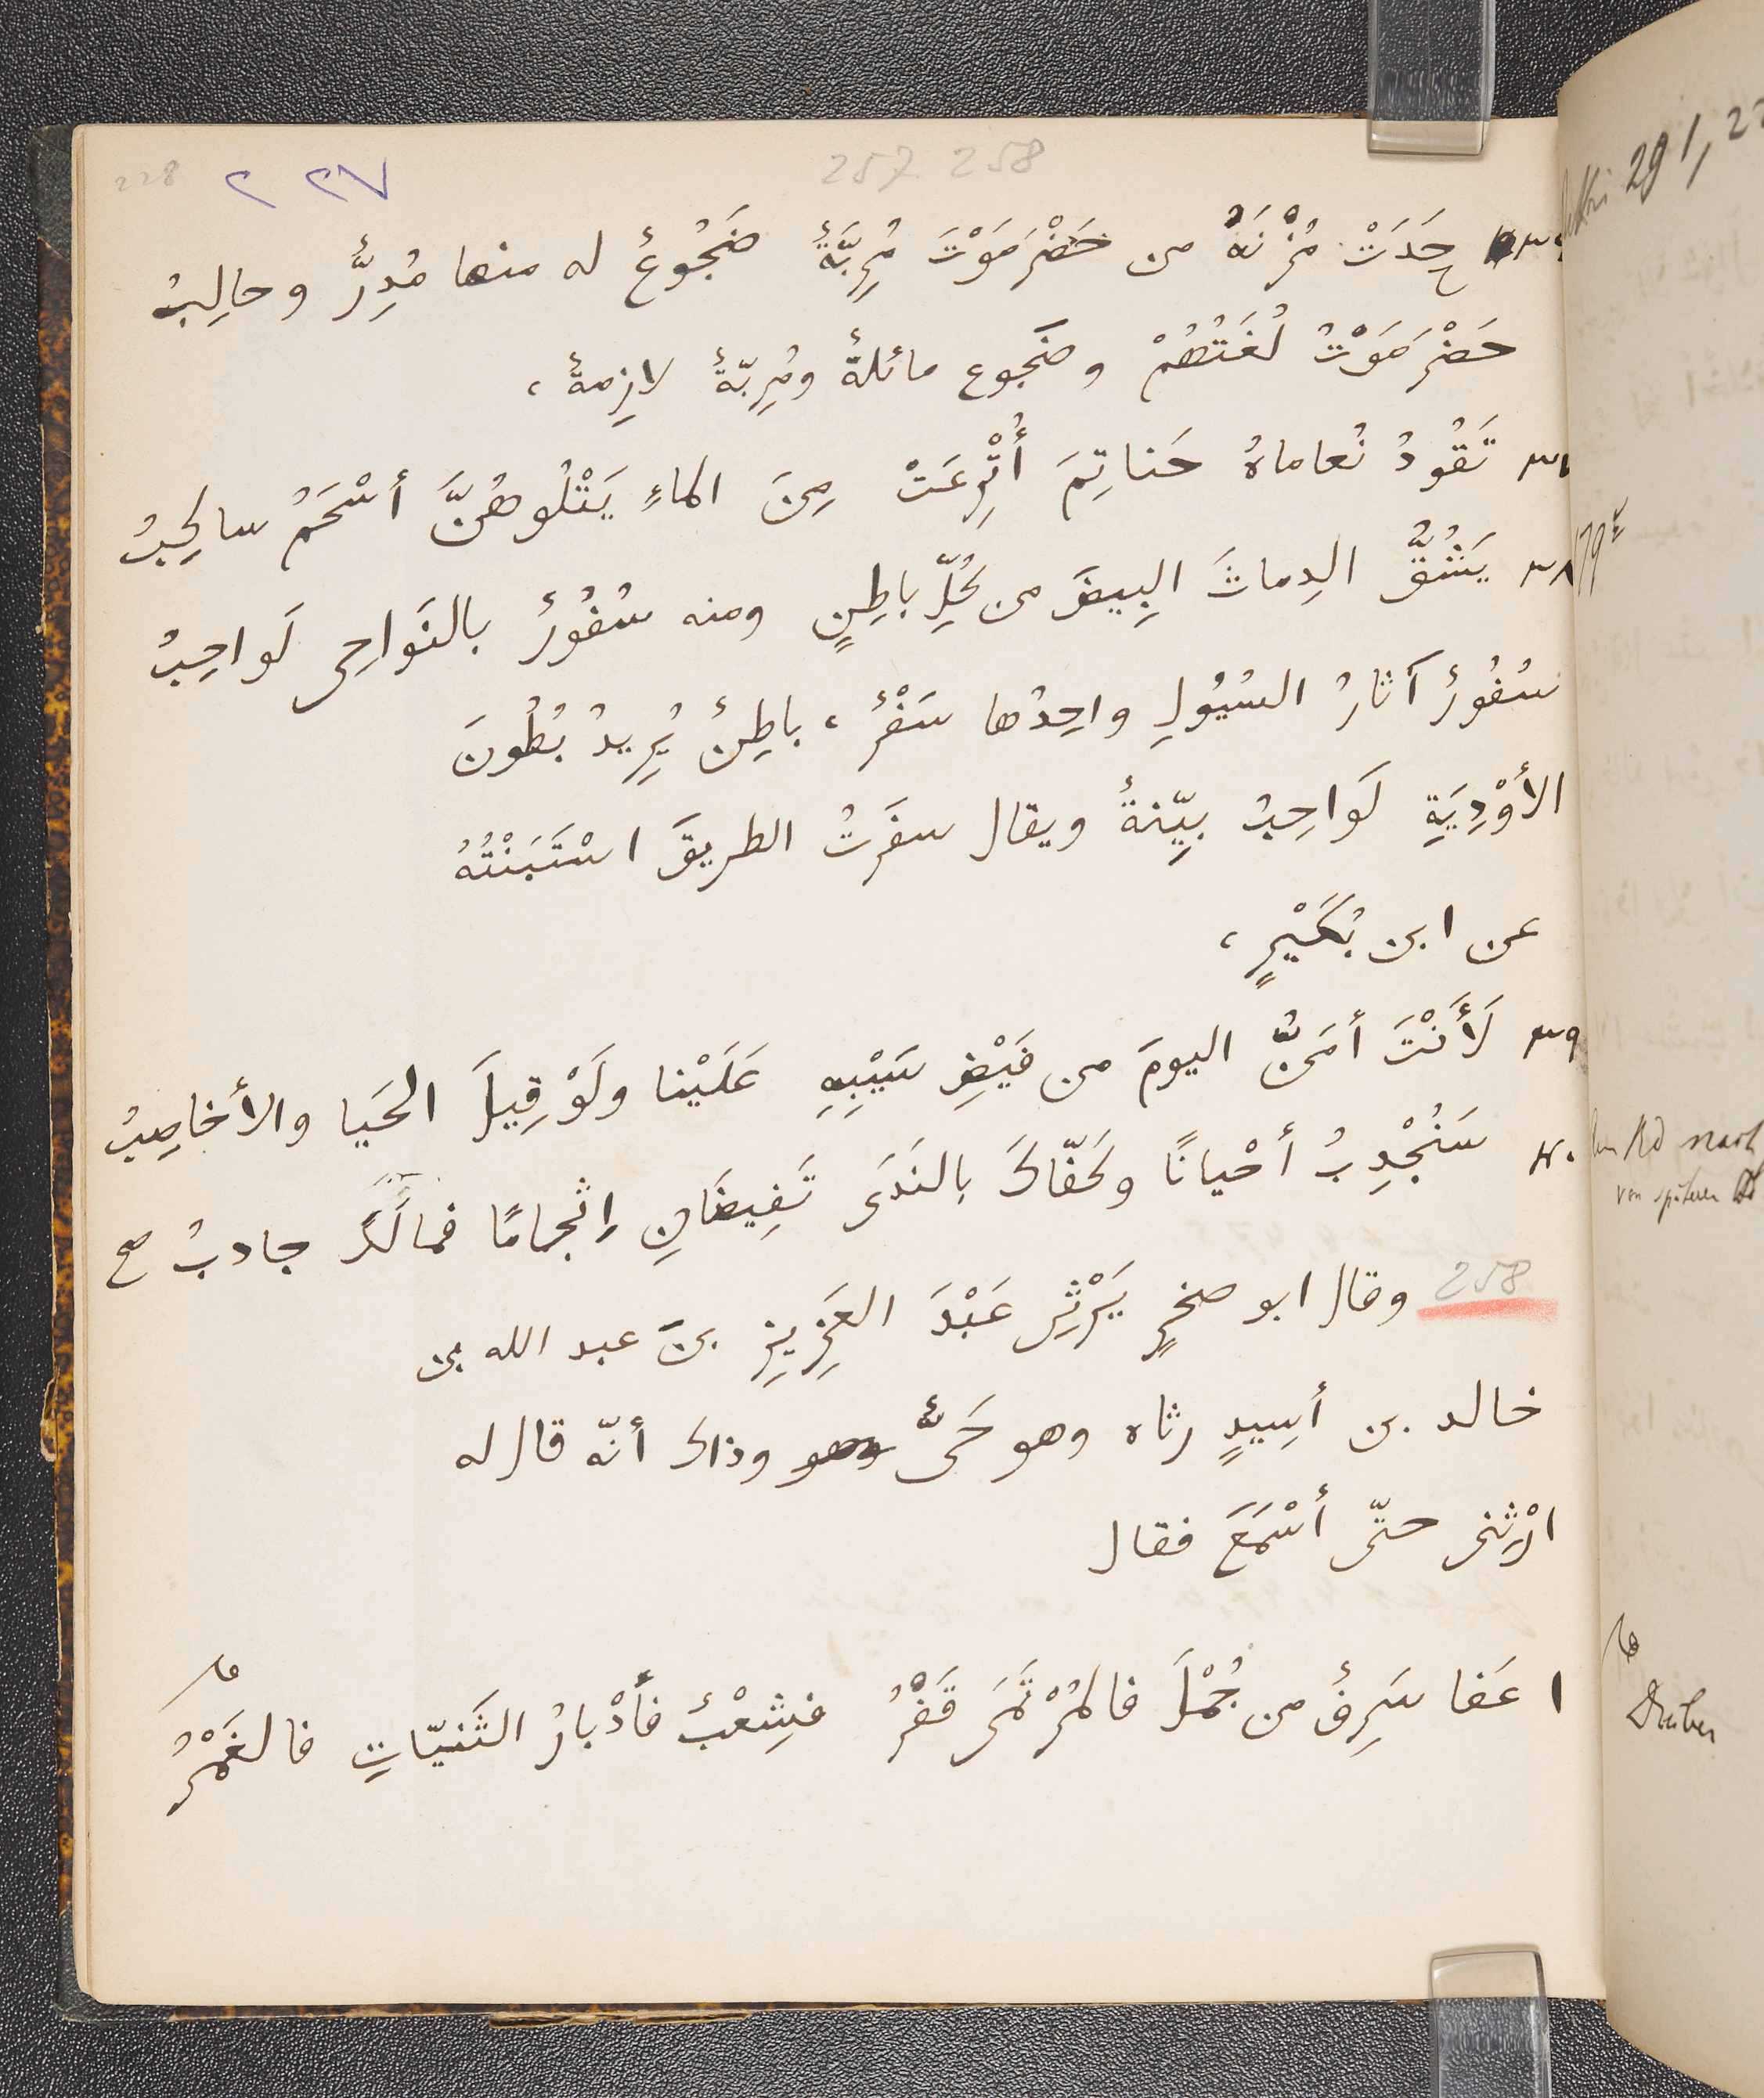 228 ٢ ٢٧ 257 258
حَدَتْ مُزْنَةٌ من حَضْرَمَوْتَ مُرِبَّةٌ ضَجُوعٌ له منها مُدِرٌّ وحالِبُ
حَضْرَمَوْتُ لُغَتُهُمْ وضَجوع مائلةٌ ومُرِبّةٌ لازِمةٌ ،
٣٧ تَقُودُ نُعاماهُ حَناتِمَ أُتْرِعَتْ مِنَ الماءِ يَتْلُوهُنَّ أسْحَمُ ساكِبُ
٣٨ يَشُقُّ الدِماثَ البِيضَ من كُلِّ باطِنٍ ومنه سُفُورٌ بالنَواحِى لَواحِبُ
سُفُورٌ آثارُ السُيُولِ واحِدُها سَفْرٌ ، باطِنٌ يُرِيدُ بُطُونَ
الأوْدِيَةِ لَواحِبُ بيِّنةٌ ويقال سفَرتُ الطريقَ اسْتَبَنْتُهُ
عن ابن بُكَيْرٍ ،
٣٩ لَأَنْتَ أمَنُّ اليومَ من فَيْضِ سَيْبِهِ عَلَيْنا ولَوْ قِيلَ الحَيا والأخاصِبُ
٤٠ سَنُجْدِبُ أحْيانًا وكَفّاكَ بالنَدَى تَفِيضَانِ إثْجامًا فمالَكَ جادبُ صح
258 وقال ابو صخرٍ يَرْثِى عَبْدَ العَزِيزِ بنَ عبد الله بن
خالد بن أسِيدٍ رثاه وهو حَىٌّ وهو وذاك أنّه قال له
ارْثِنى حتّى أسْمَعَ فقال
١ عَفا سَرِفٌ من جُمْلَ فالمُرْتَمَى قَفْرُ فشِعْبٌ فأدْبارُ الثَنيّاتِ فالغَمْرُ
291, 2
179
Ad nach
von späterer
Druber